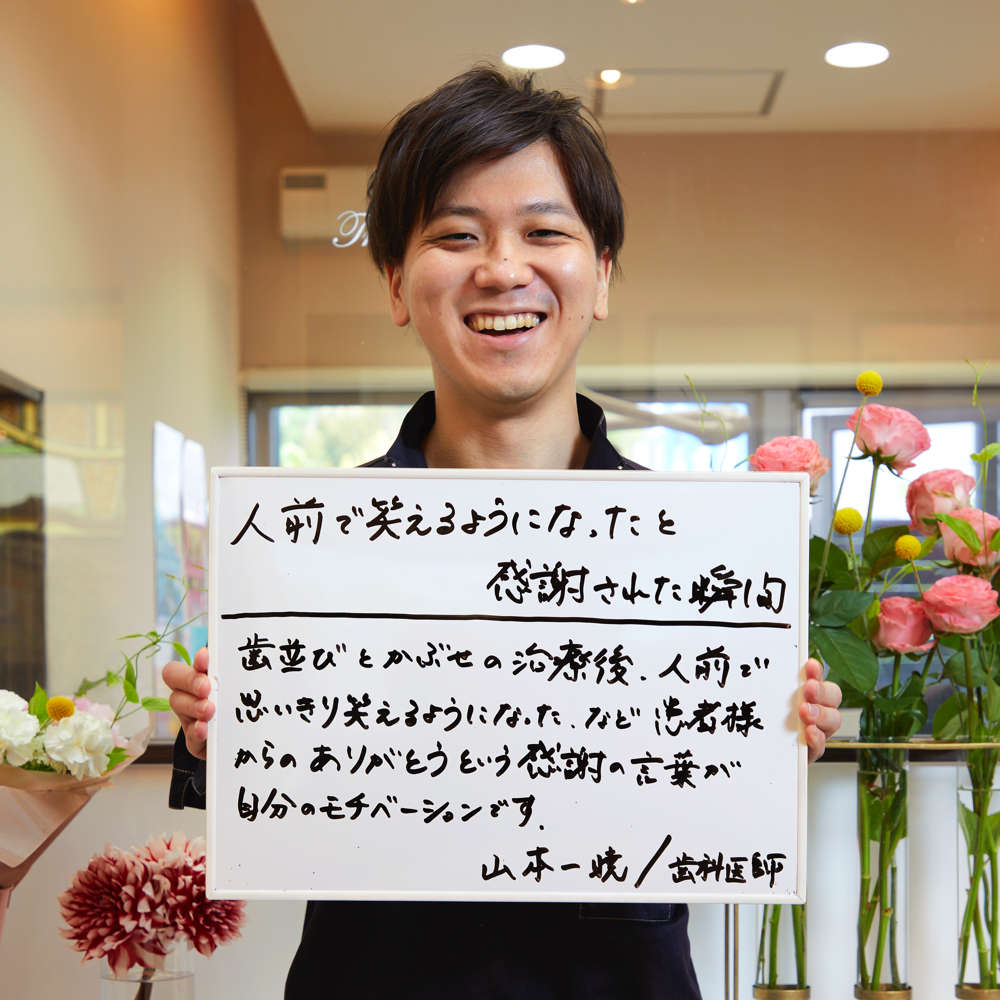 人前で笑えるようになったと
感謝された瞬間
歯並びとかぶせの治療後、人前で
思いきり笑えるようになった、など患者様
からのありがとうという感謝の言葉が
自分のモチベーションです。
山本一暁/歯科医師